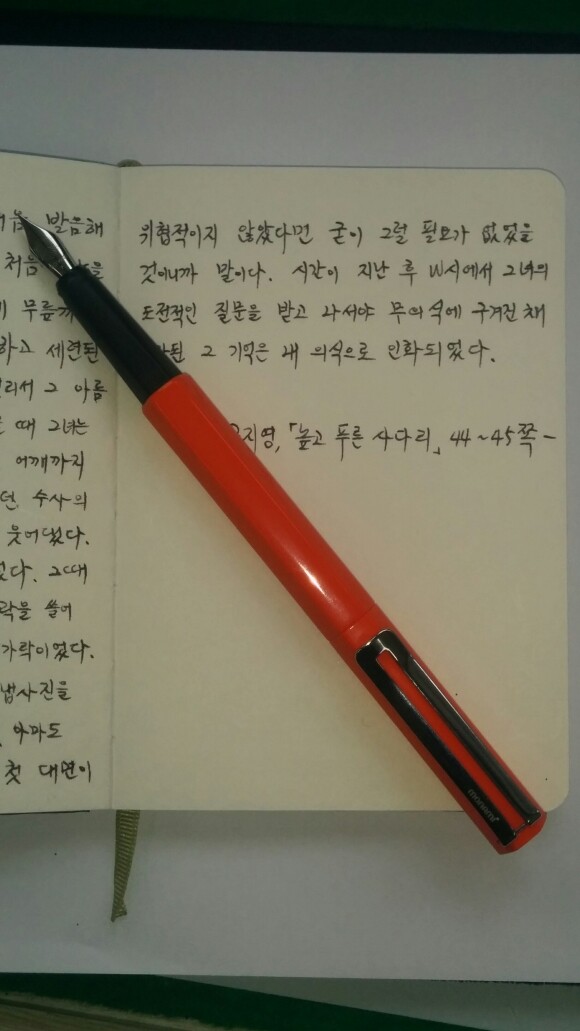 발음해
처음
무릎까
하고 세련된
그 아름
때 그녀는
어깨까지
수사의
웃어댔다.
그때
락을 쓸어
가락이었다.
냅사진을
아마도
첫 대면이
위협적이지 않았다면 굳이 그럴 필요가 없었을
것이니까 말이다. 시간이 지난 후 W시에서 그녀의
도전적인 질문을 받고 나서야 무의식에 구겨진 채
된 그 기억은 내 의식으로 인화되었다.
지영, 「높고 푸른 사다리」, 44~45쪽 -
monami